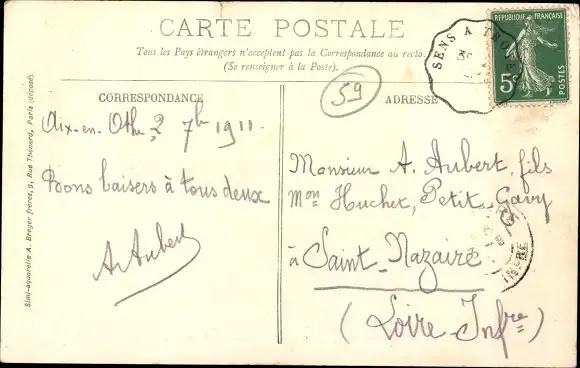 CARTE POSTALE
Tous les Pays étrangers n'acceptent pas la Correspondance au recto.
(Se renseigner à la Poste).
SENS A
REPUBLIQUE FRANÇAISE
5c
POSTES
59
CORRESPONDANCE
Aix-en-Othe 2 7bre 1911.
Bons baisers à tous deux
A. Aubert
ADRESSE
Monsieur A. Aubert, fils
Mon Huchet, Petit-Gavy
à Saint-Nazaire
(Loire-Infre)
INFRE
Simi-aquarelle A. Breger frères, 9, Rue Thénard, Paris (déposé).